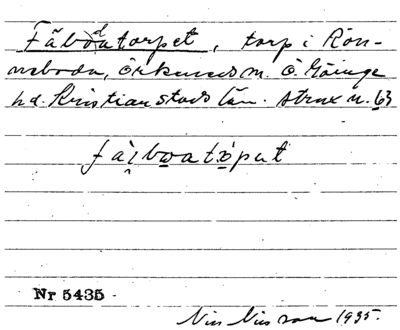 Fäbodatorpet, torp i Ron-
neboda, Örkeneds sn. Ö. Göinge
hd. Kristianstads län. strax n. 63
Nr 5435
Nils Nilsson 1935.